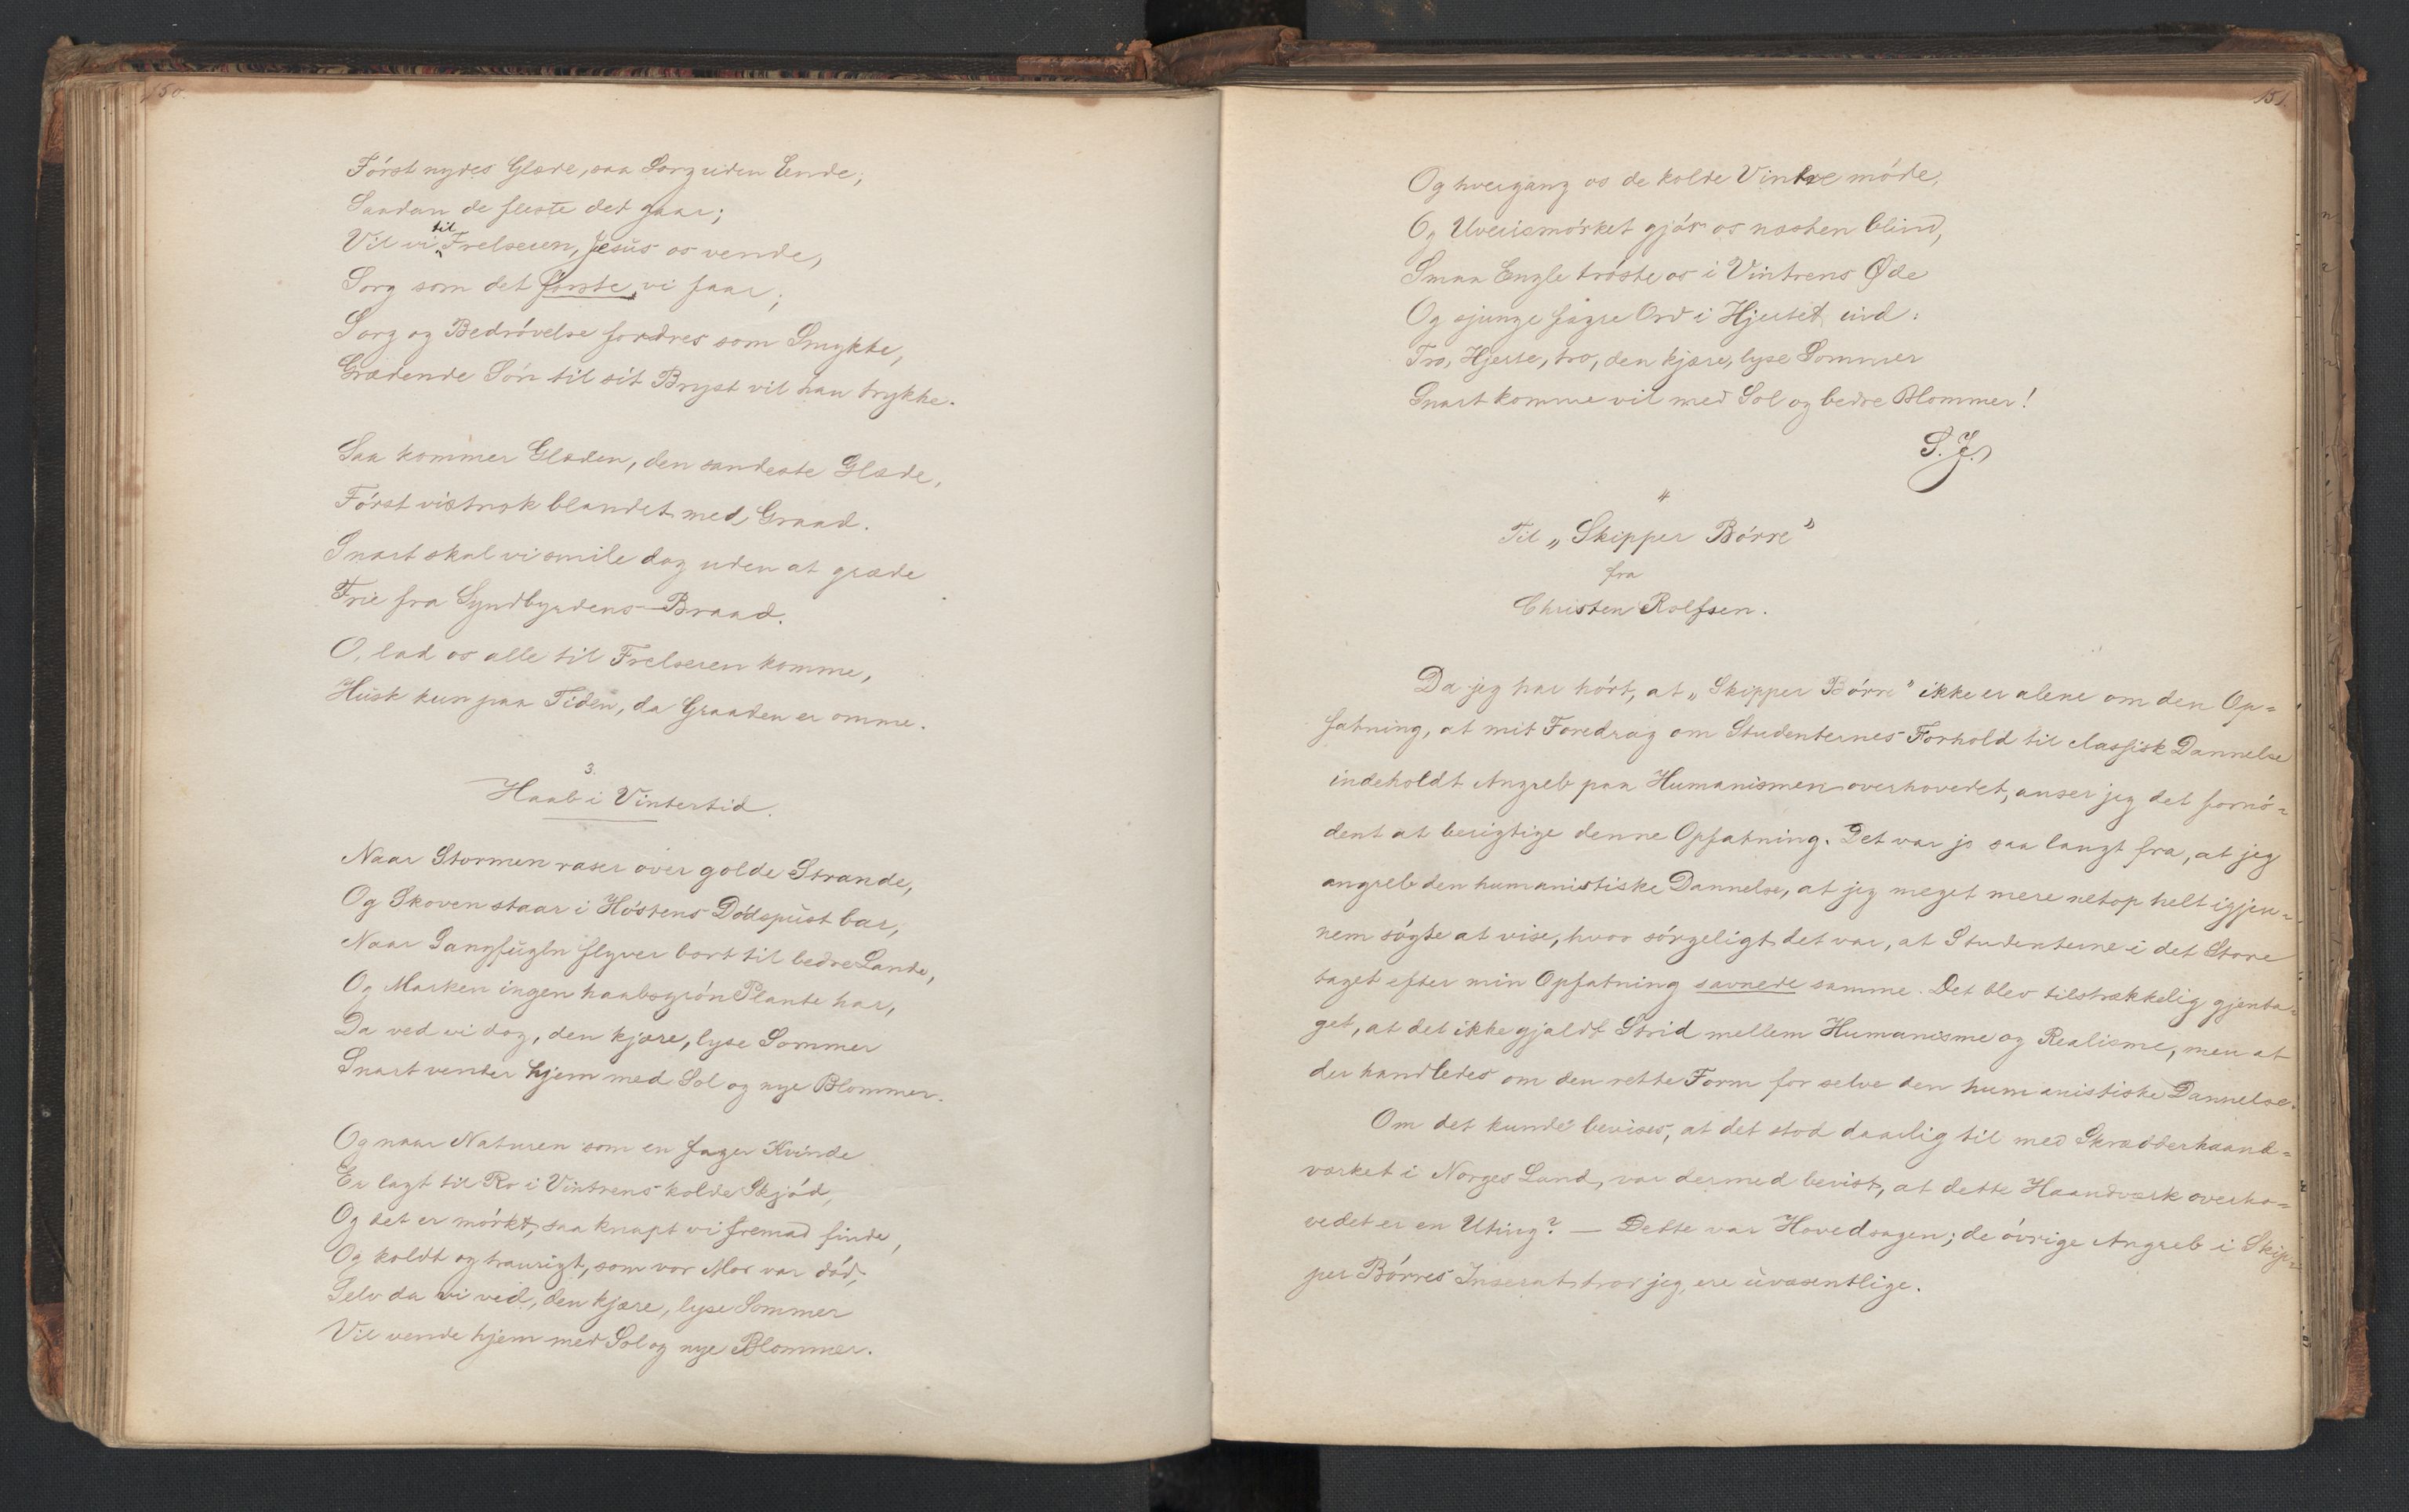 150.
Först nydes Glæde, saa Sorg uden Ende;
Saadan de fleste det gaar;
Vil vi til Frelseren, Jesus os vende,
Sorg som det förste, vi faar;
Sorg og Bedrövelse fordres som Smykke,
Grædende Sön til sit Bryst vil han trykke.
Saa kommer Glæden, den sandeste Glæde,
Först vistnok blandet med Graad.
Snart skal vi smile dog uden at græde
Frie fra Syndbyrdens Braad.
O, lad os alle til Frelseren komme,
Husk kun paa Tiden, da Graaden er omme.
3.
Haab i Vintertid.
Naar Stormen raser over golde Strande,
Og Skoven staar i Höstens Dödspust bar,
Naar Sangfugln flyver bort til bedre Lande,
Og Marken ingen haabsgrön Plante har,
Da ved vi dog, den kjære, lyse Sommer
Snart vender hjem med Sol og nye Blommer.
Og naar Naturen som en fager Kvinde
Er lagt til Ro i Vintrens kolde Skjöd,
Og det er mörkt, saa knapt vi fremad finde,
Og koldt og traurigt, som vor Mor var död,
Selv da vi ved, den kjære, lyse Sommer
Vil vende hjem med Sol og nye Blommer.
151.
Og hvergang os de kolde Vintre möde,
Og Uveirsmörket gjör os næsten blind,
Smaa Engle tröste os i Vintrens Øde
Og sjunge fagre Ord i Hjertet ind:
Tro, Hjerte, tro, den kjære, lyse Sommer
Snart komme vil med Sol og bedre Blommer!
S. J.
4
Til „Skipper Börre"
fra
Christen Rolfsen.
Da jeg har hört, at „Skipper Börre" ikke er alene om den Op=
fatning, at mit Foredrag om Studenternes Forhold til classisk Dannelse
indeholdt Angreb paa Humanismen overhovedet, anser jeg det fornö=
dent at berigtige denne Opfatning. Det var jo saa langt fra, at jeg
angreb den humanistiske Dannelse, at jeg meget mere netop helt igjen=
nem sögte at vise, hvor sörgeligt det var, at Studenterne i det Store
taget efter min Opfatning savnede samme. Det blev tilstrækkelig gjenta=
get, at det ikke gjaldt Strid mellem Humanisme og Realisme, men at
der handledes om den rette Form for selve den humanistiske Dannelse.
Om det kunde bevises, at det stod daarlig til med Skrædderhaand=
værket i Norges Land, var dermed bevist, at dette Haandværk overho=
vedet er en Uting? — Dette var Hovedsagen; de övrige Angreb i Skip=
per Börres Inserat, tror jeg, ere uvæsentlige.